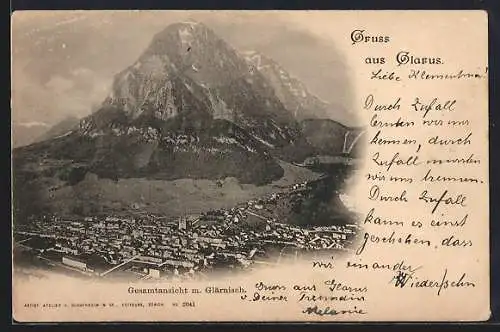 Gruss
aus Glarus.
Liebe Klementine!
Durch Zufall
lernten wir uns
kennen, durch
Zufall mussten
wir uns trennen.
Durch Zufall
kann es einst
geschehen, dass
wir einander
Wiedersehn
Gesamtansicht m. Glärnisch.
Gruss aus Glarus
v. Deiner Freundin
Melanie
ARTIST. ATELIER H. GUGGENHEIM & Co., EDITEURS, ZÜRICH. No. 2041